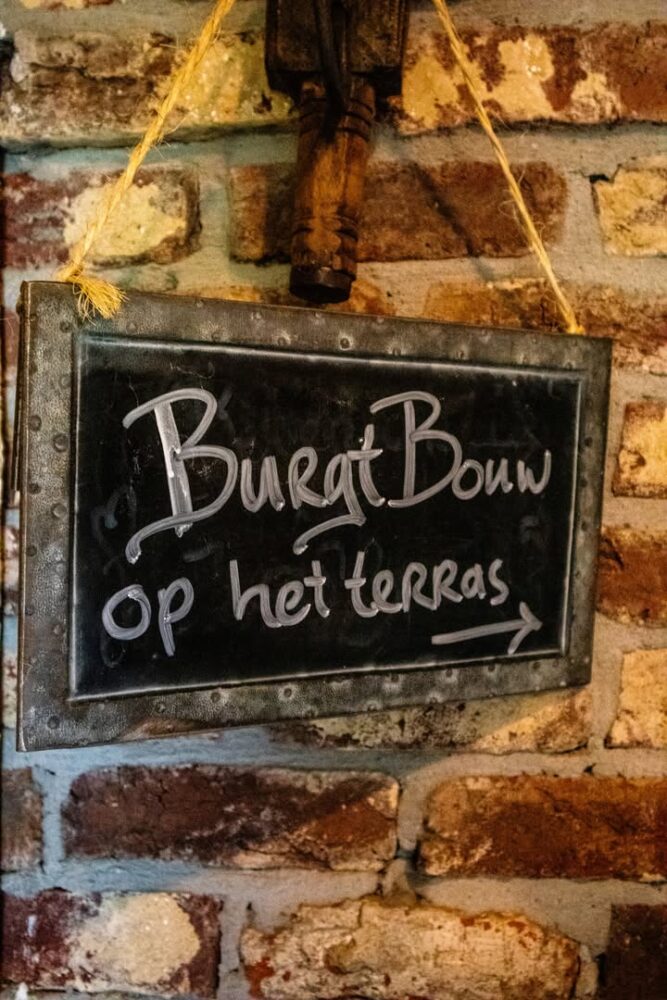 BurgtBouw
op het terras